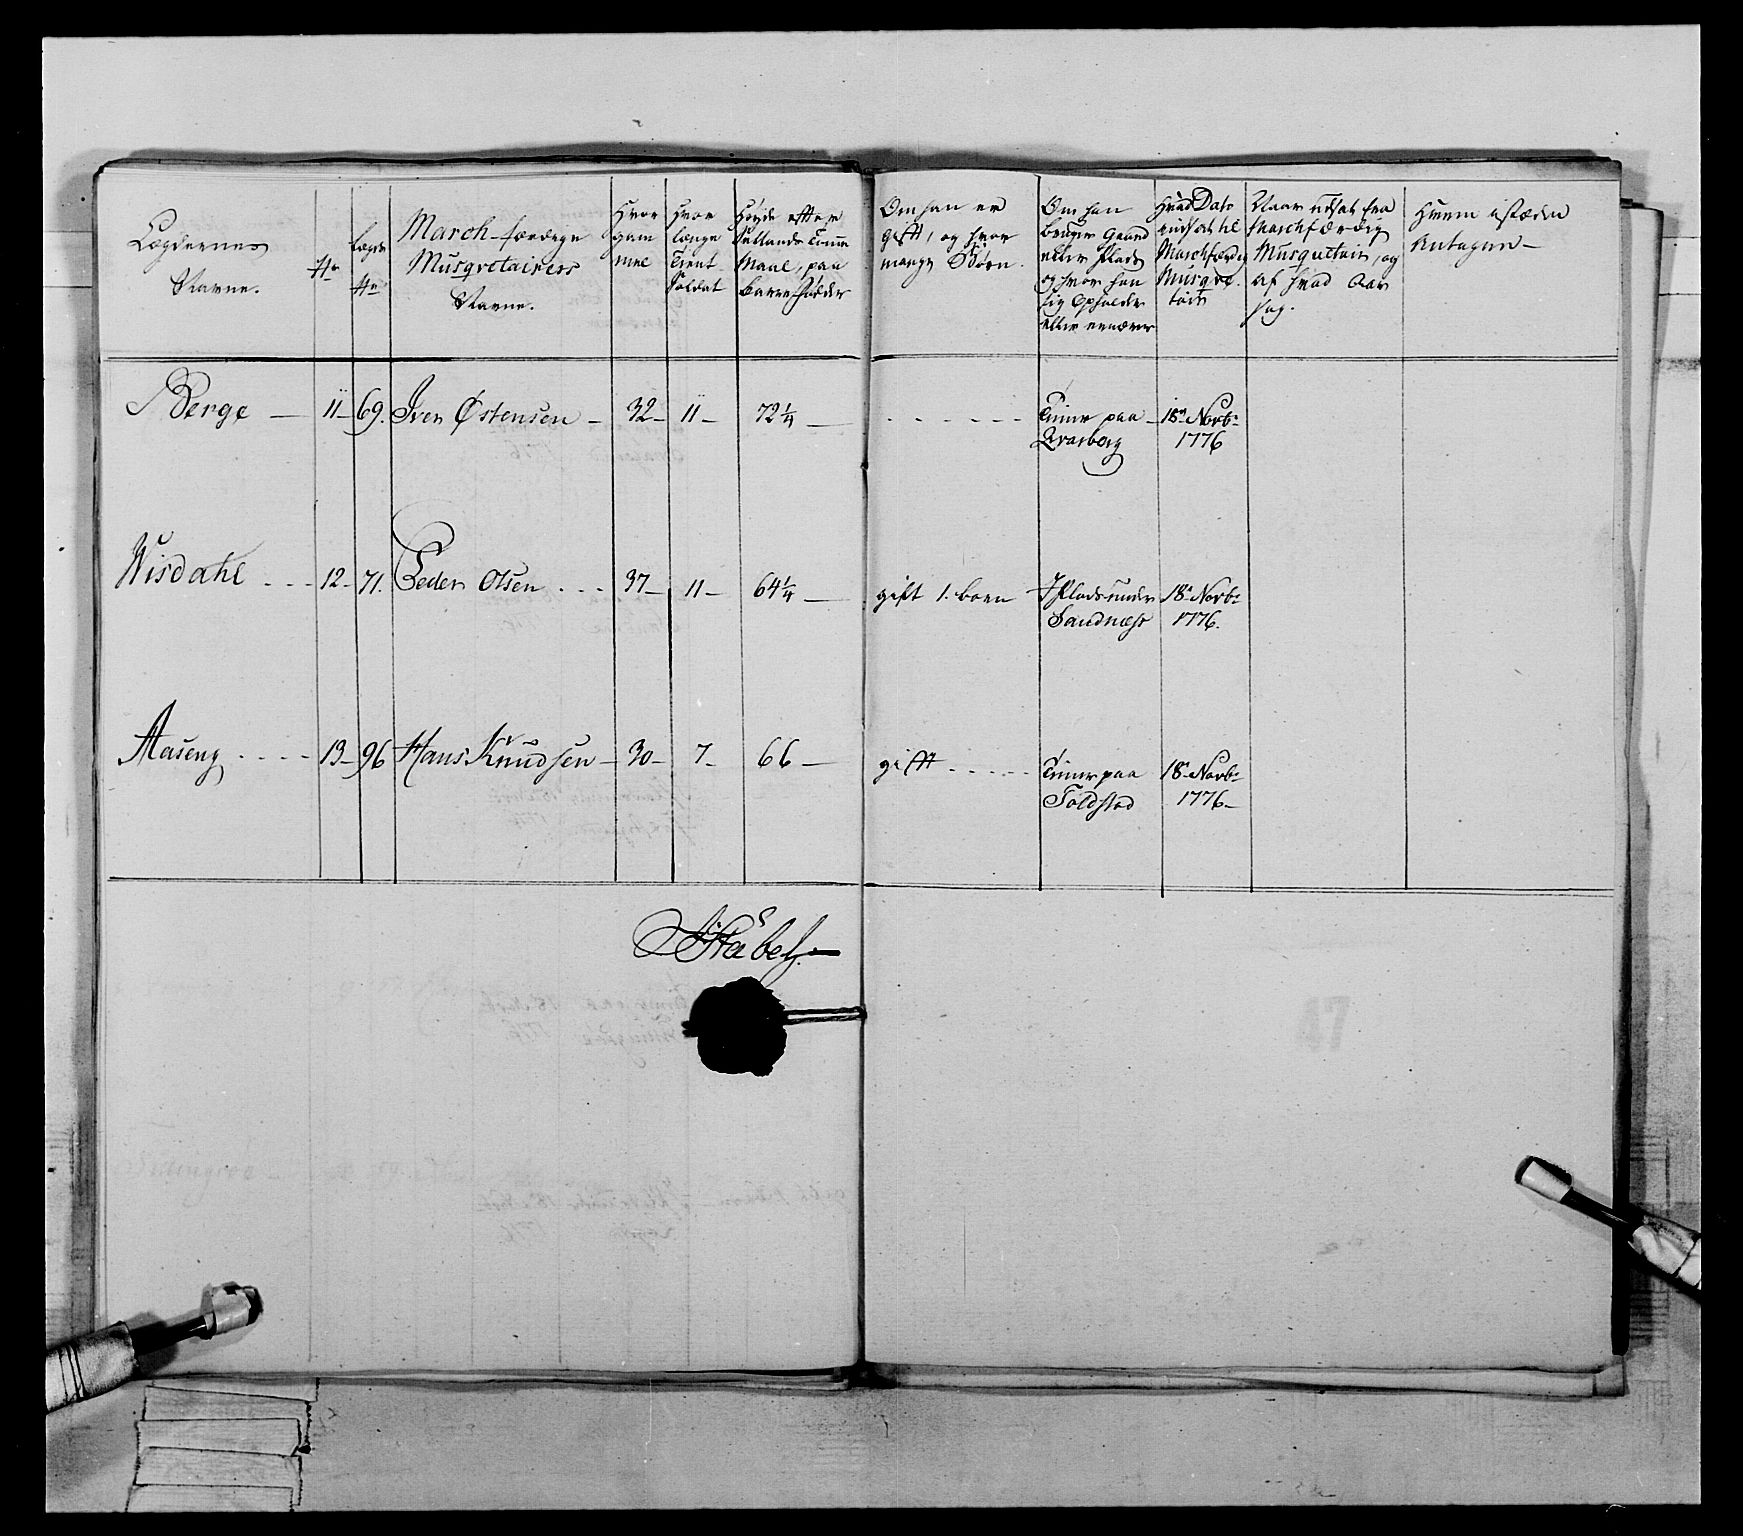 Lægdernes
Navne.
No
Lægde
No
March-færdige
Musqvetairers
Navne.
Hvor
gam
mel
Hvor
længe
tient
Soldat
Høyde efter
Sællands Tomme
Maal, paa
barre Fødder
Om han er
gift, og hvor
mange Børn.
Om han
bruger Gaard
eller Plads
og hvor han
sig opholder
eller ernærer
Hvad Dato
indsat til
Marschfærdig
Musqve
tair
Naar udsat fra
Marschfærdig
Musquetair, og
af hvad Aar
sag.
Hvem istæden
Antagen —
Berge — 11 — 69. Iver Østensen — 32 — 11 — 72 1/4 —
Tiener paa
Qvarberg
18de Novbr
1776
Wisdahl . . . 12 - 71. Peder Olsen . . . 37 — 11 — 64 1/4 —
gift 1. barn
Plads under
Sandnæss
18de Novbr
1776.
Aaseng . . . . 13 — 96 Hans Knudsen — 30 — 7 — 66 —
gift . . . . .
Tiener paa
Toldstad
18de Novbr
1776 —
Stabel. —
47